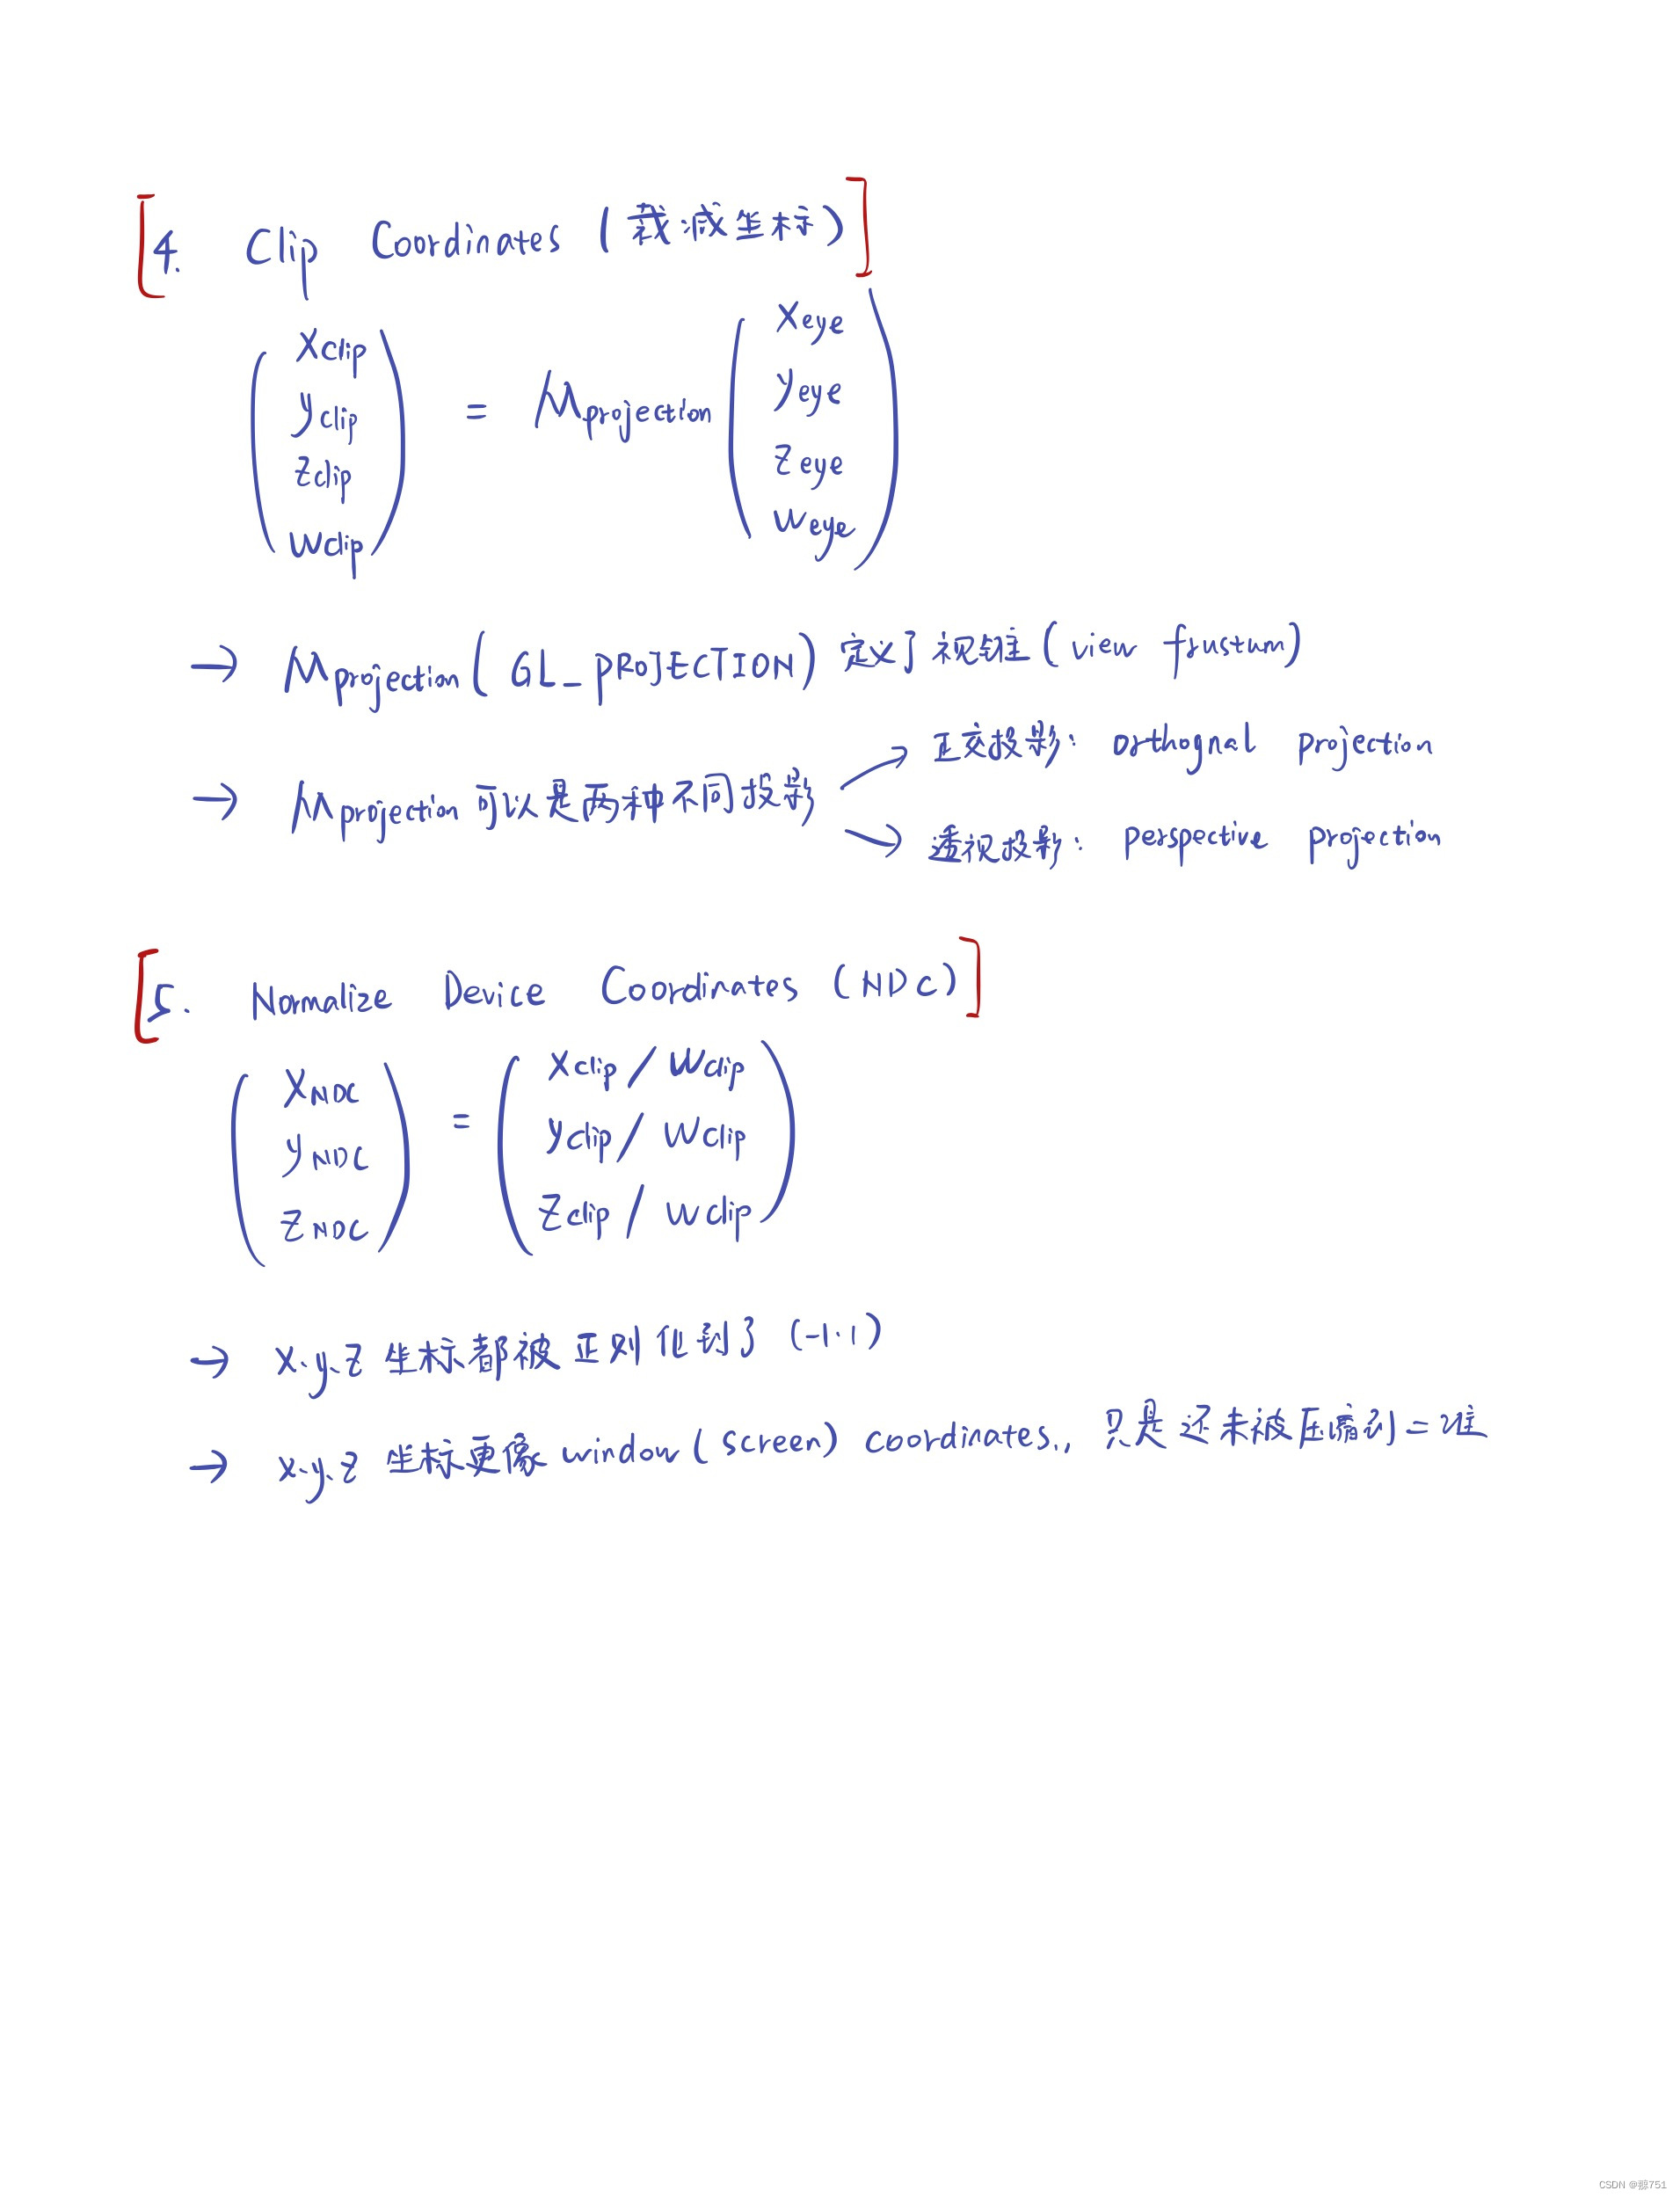 [4. Clip Coordinates (裁减坐标)]
(Xclip yclip zclip wclip) = Mprojection (Xeye yeye zeye weye)
→ Mprojection(GL_PROJECTION) 定义了视锥(view frustum)
→ Mprojection可以是两种不同投影
↗ 正交投影: orthognal projection
↘ 透视投影: perspective projection
[5. Normalize Device Coordinates (NDC)]
(XNDC yNDC zNDC) = (Xclip/Wclip yclip/Wclip zclip/Wclip)
→ x、y、z 坐标都被正则化到了 (-1、1)
→ x、y、z 坐标更像 window(screen) coordinates., 只是还未被压缩到二维
CSDN @郡751